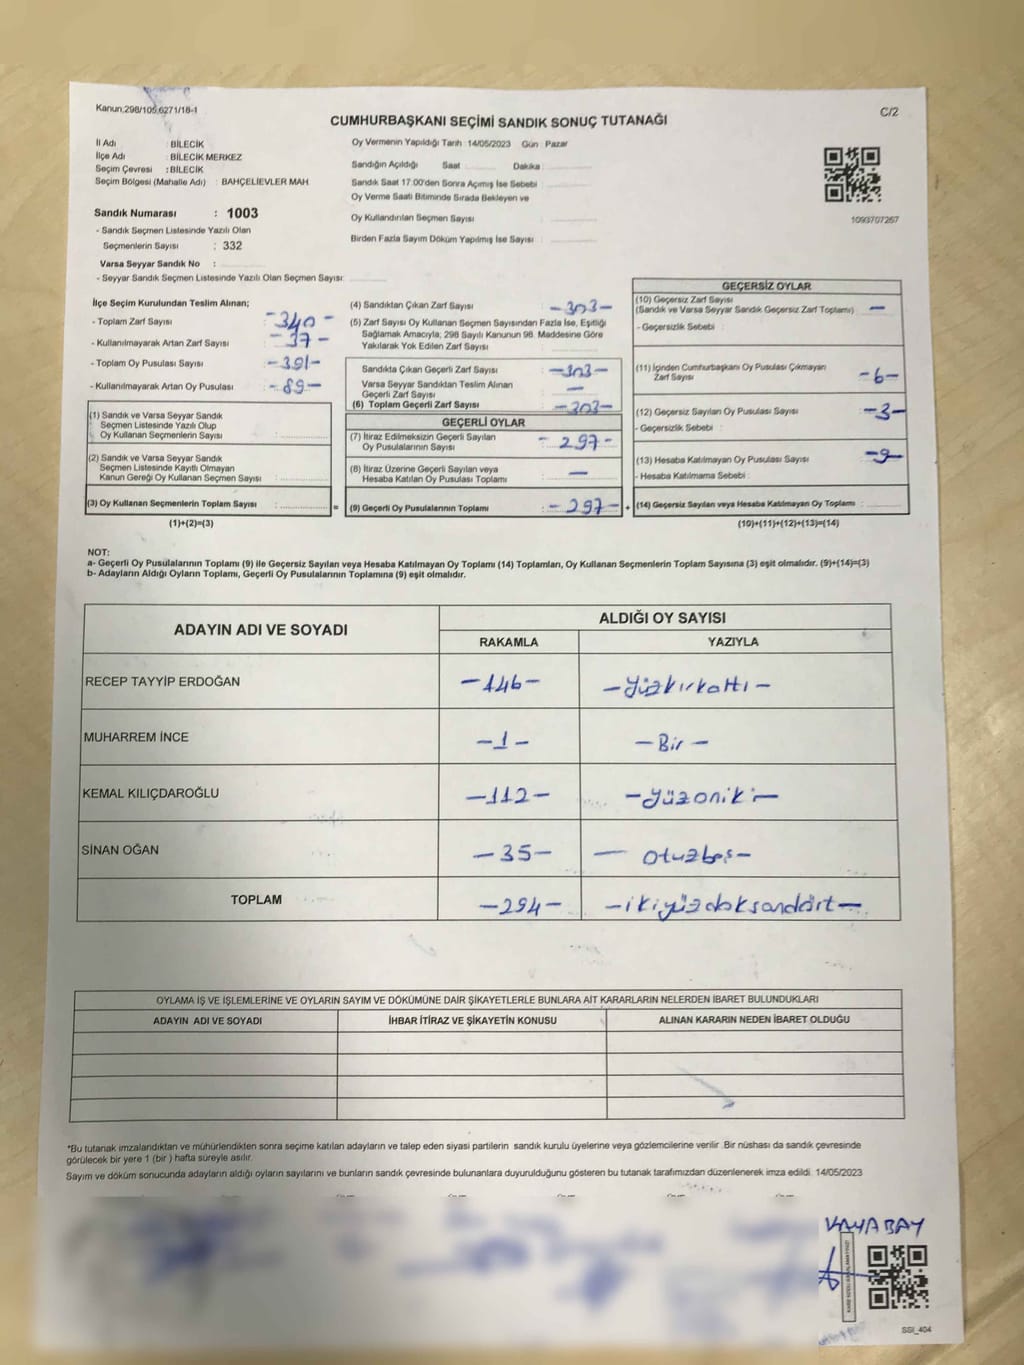 Kanun:298/105,6271/18-1
C/2
CUMHURBAŞKANI SEÇİMİ SANDIK SONUÇ TUTANAĞI
İl Adı : BİLECİK
İlçe Adı : BİLECİK MERKEZ
Seçim Çevresi : BİLECİK
Seçim Bölgesi (Mahalle Adı) : BAHÇELİEVLER MAH.
Sandık Numarası : 1003
- Sandık Seçmen Listesinde Yazılı Olan
Seçmenlerin Sayısı : 332
Varsa Seyyar Sandık No :
- Seyyar Sandık Seçmen Listesinde Yazılı Olan Seçmen Sayısı:
Oy Vermenin Yapıldığı Tarih :14/05/2023 Gün : Pazar
Sandığın Açıldığı Saat Dakika :
Sandık Saat 17.00'den Sonra Açımış İse Sebebi :
Oy Verme Saati Bitiminde Sırada Bekleyen ve
Oy Kullandırılan Seçmen Sayısı :
Birden Fazla Sayım Döküm Yapılmış İse Sayısı :
1093707267
İlçe Seçim Kurulundan Teslim Alınan;
- Toplam Zarf Sayısı : -340-
- Kullanılmayarak Artan Zarf Sayısı : -37-
- Toplam Oy Pusulası Sayısı : -391-
- Kullanılmayarak Artan Oy Pusulası : -89-
(1) Sandık ve Varsa Seyyar Sandık
Seçmen Listesinde Yazılı Olup
Oy Kullanan Seçmenlerin Sayısı :
(2) Sandık ve Varsa Seyyar Sandık
Seçmen Listesinde Kayıtlı Olmayan
Kanun Gereği Oy Kullanan Seçmen Sayısı :
(3) Oy Kullanan Seçmenlerin Toplam Sayısı : =
(1)+(2)=(3)
(4) Sandıktan Çıkan Zarf Sayısı : -303-
(5) Zarf Sayısı Oy Kullanan Seçmen Sayısından Fazla İse, Eşitliği
Sağlamak Amacıyla, 298 Sayılı Kanunun 98. Maddesine Göre
Yakılarak Yok Edilen Zarf Sayısı :
Sandıkta Çıkan Geçerli Zarf Sayısı : -303-
Varsa Seyyar Sandıktan Teslim Alınan
Geçerli Zarf Sayısı : -
(6) Toplam Geçerli Zarf Sayısı : -303-
GEÇERLİ OYLAR
(7) İtiraz Edilmeksizin Geçerli Sayılan
Oy Pusulalarının Sayısı : -297-
(8) İtiraz Üzerine Geçerli Sayılan veya
Hesaba Katılan Oy Pusulası Toplamı : -
(9) Geçerli Oy Pusulalarının Toplamı : -297- +
GEÇERSİZ OYLAR
(10) Geçersiz Zarf Sayısı
(Sandık ve Varsa Seyyar Sandık Geçersiz Zarf Toplamı) : -
- Geçersizlik Sebebi :
(11) İçinden Cumhurbaşkanı Oy Pusulası Çıkmayan
Zarf Sayısı : -6-
(12) Geçersiz Sayılan Oy Pusulası Sayısı : -3-
- Geçersizlik Sebebi :
(13) Hesaba Katılmayan Oy Pusulası Sayısı : -9-
- Hesaba Katılmama Sebebi :
(14) Geçersiz Sayılan veya Hesaba Katılmayan Oy Toplamı :
(10)+(11)+(12)+(13)=(14)
NOT:
a- Geçerli Oy Pusulalarının Toplamı (9) ile Geçersiz Sayılan veya Hesaba Katılmayan Oy Toplamı (14) Toplamları, Oy Kullanan Seçmenlerin Toplam Sayısına (3) eşit olmalıdır. (9)+(14)=(3)
b- Adayların Aldığı Oyların Toplamı, Geçerli Oy Pusulalarının Toplamına (9) eşit olmalıdır.
ADAYIN ADI VE SOYADI
ALDIĞI OY SAYISI
RAKAMLA YAZIYLA
RECEP TAYYİP ERDOĞAN -146- -Yüzkırkaltı-
MUHARREM İNCE -1- -Bir-
KEMAL KILIÇDAROĞLU -112- -yüzoniki-
SİNAN OĞAN -35- -otuzbeş-
TOPLAM -294- -ikiyüzdoksandört-
OYLAMA İŞ VE İŞLEMLERİNE VE OYLARIN SAYIM VE DÖKÜMÜNE DAİR ŞİKAYETLERLE BUNLARA AİT KARARLARIN NELERDEN İBARET BULUNDUKLARI
ADAYIN ADI VE SOYADI İHBAR İTİRAZ VE ŞİKAYETİN KONUSU ALINAN KARARIN NEDEN İBARET OLDUĞU
*Bu tutanak imzalandıktan ve mühürlendikten sonra seçime katılan adayların ve talep eden siyasi partilerin sandık kurulu üyelerine veya gözlemcilerine verilir. Bir nüshası da sandık çevresinde
görülecek bir yere 1 (bir ) hafta süreyle asılır.
Sayım ve döküm sonucunda adayların aldığı oyların sayılarını ve bunların sandık çevresinde bulunanlara duyurulduğunu gösteren bu tutanak tarafımızdan düzenlenerek imza edildi. 14/05/2023
KAYABAY
SSI_404